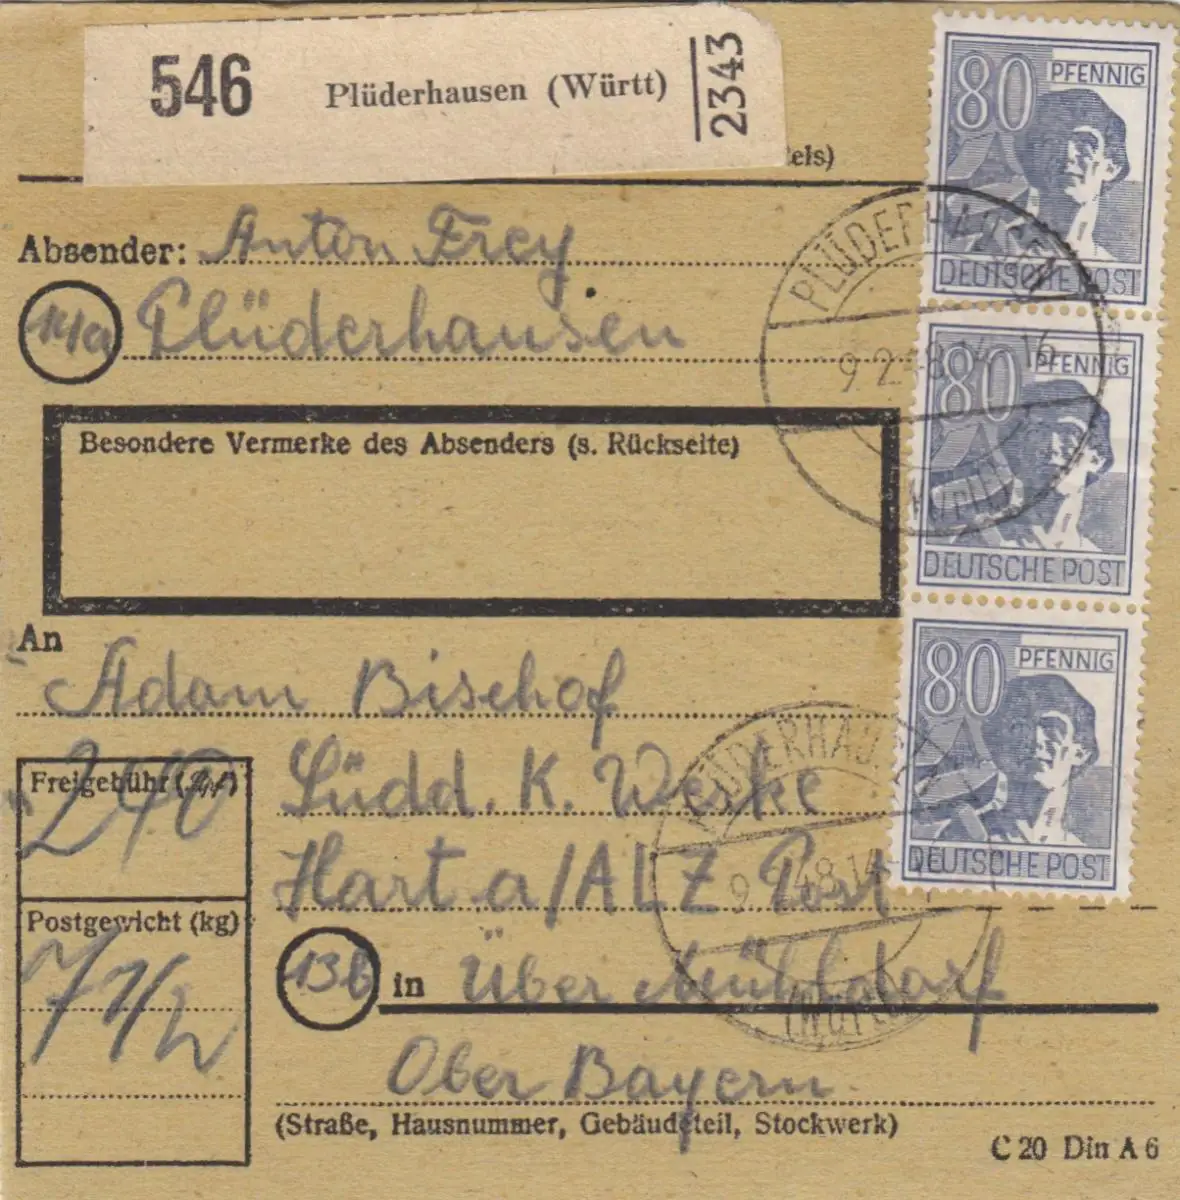 546 Plüderhausen (Württ) 2343
tels)
80 PFENNIG
DEUTSCHE POST
Absender: Anton Frey
14a Plüderhausen
PLÜDERHAUSEN
9.2.48.14-16
(Württ)
80 PFENNIG
DEUTSCHE POST
Besondere Vermerke des Absenders (s. Rückseite)
80 PFENNIG
DEUTSCHE POST
An
Adam Bischof
Freigebühr (Rpf)
240
Südd. K. Werke
Hart a/ALZ Post
PLÜDERHAUSEN
9.2.48.14
(Württ)
Postgewicht (kg)
7 1/2
13b in Über Mühldorf
Ober Bayern
(Straße, Hausnummer, Gebäudeteil, Stockwerk)
C 20 Din A 6